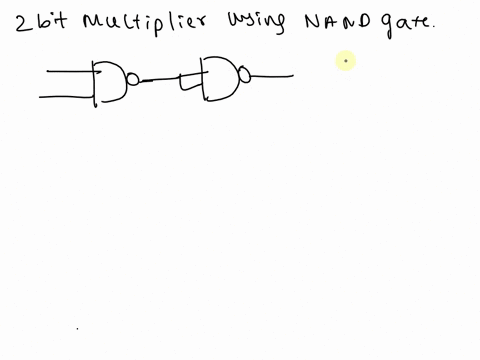 2 bit Multiplier using NAND gate.